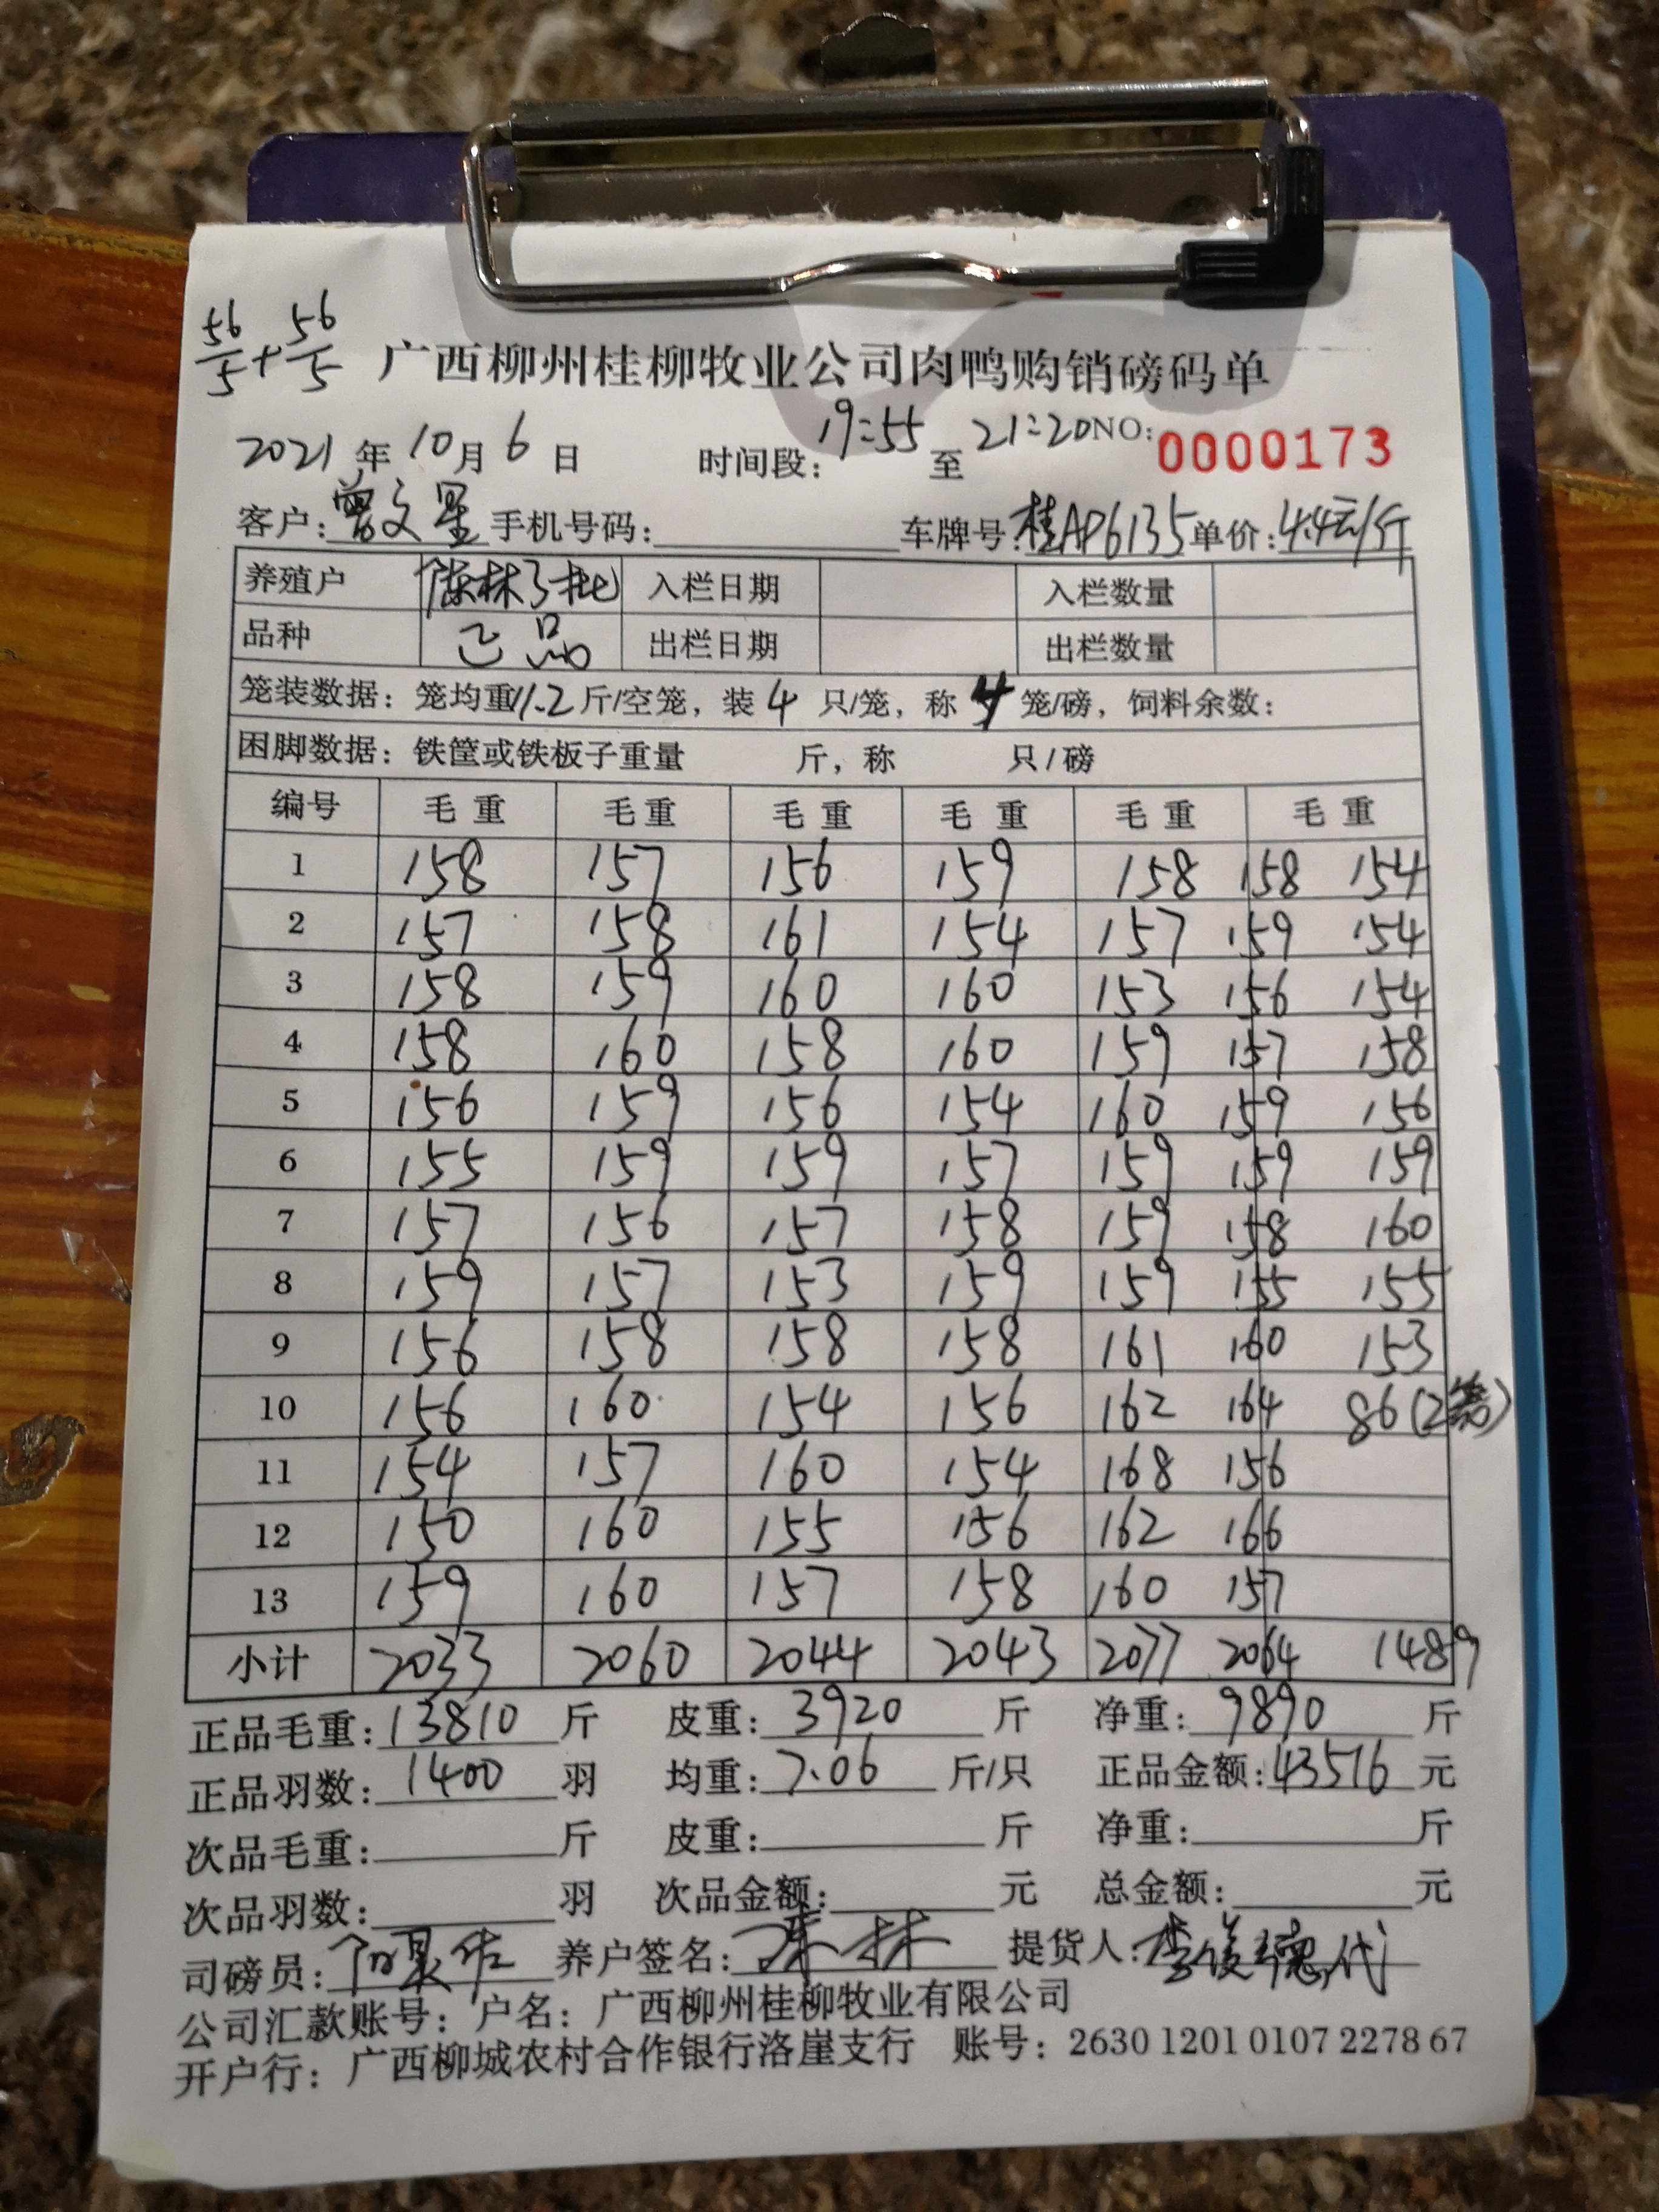 56/5 + 56/5
广西柳州桂柳牧业公司肉鸭购销磅码单
2021年10月6日 时间段：19:55 至 21:20 NO: 0000173
客户：曾文星 手机号码： 车牌号：桂AP6135 单价：4.4元/斤
养殖户 陈林3批 入栏日期 入栏数量
品种 正品 出栏日期 出栏数量
笼装数据：笼均重11.2斤/空笼，装4只/笼，称 笼/磅，饲料余数：
困脚数据：铁筐或铁板子重量 斤，称 只/磅
编号 毛重 毛重 毛重 毛重 毛重 毛重
1 158 157 156 159 158 158 154
2 157 158 161 154 157 159 154
3 158 159 160 160 153 156 154
4 158 160 158 160 159 157 158
5 156 159 156 154 160 159 156
6 155 159 159 157 159 159 159
7 157 156 157 158 159 158 160
8 159 157 153 159 159 155 155
9 156 158 158 158 161 160 153
10 156 160 154 156 162 164 86(2笼)
11 154 157 160 154 168 156
12 150 160 155 156 162 166
13 159 160 157 158 160 157
小计 2033 2060 2044 2043 2077 2064 1489
正品毛重：13810斤 皮重：3920斤 净重：9890斤
正品羽数：1400羽 均重：7.06斤/只 正品金额：43516元
次品毛重： 斤 皮重： 斤 净重： 斤
次品羽数： 羽 次品金额： 元 总金额： 元
司磅员： 养户签名： 提货人：李俊德代
公司汇款账号：户名：广西柳州桂柳牧业有限公司
开户行：广西柳城农村合作银行洛崖支行 账号：2630 1201 0107 2278 67